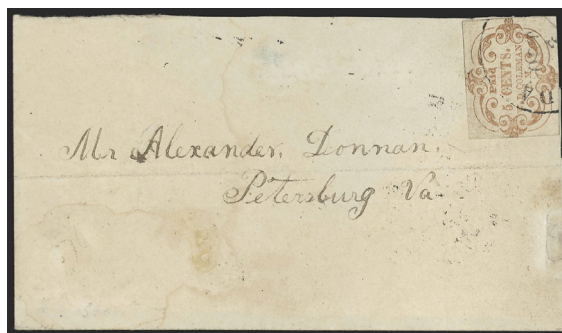 Paid
5 CENTS.
COLEMAN
Mr Alexander. Donnan.
Petersburg Va